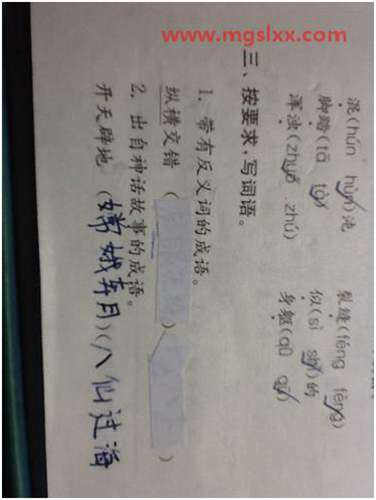 www.mgslxx.com
混(hún hùn)沌 裂缝(féng fèng)
脚踏(tā tà) 似(sì shì)的
浑浊(zhuó zhú) 身躯(qū qǖ)
三、按要求,写词语。
1. 带有反义词的成语。
纵横交错 ( ) (
2. 出自神话故事的成语。
开天辟地 (嫦娥奔月)(八仙过海